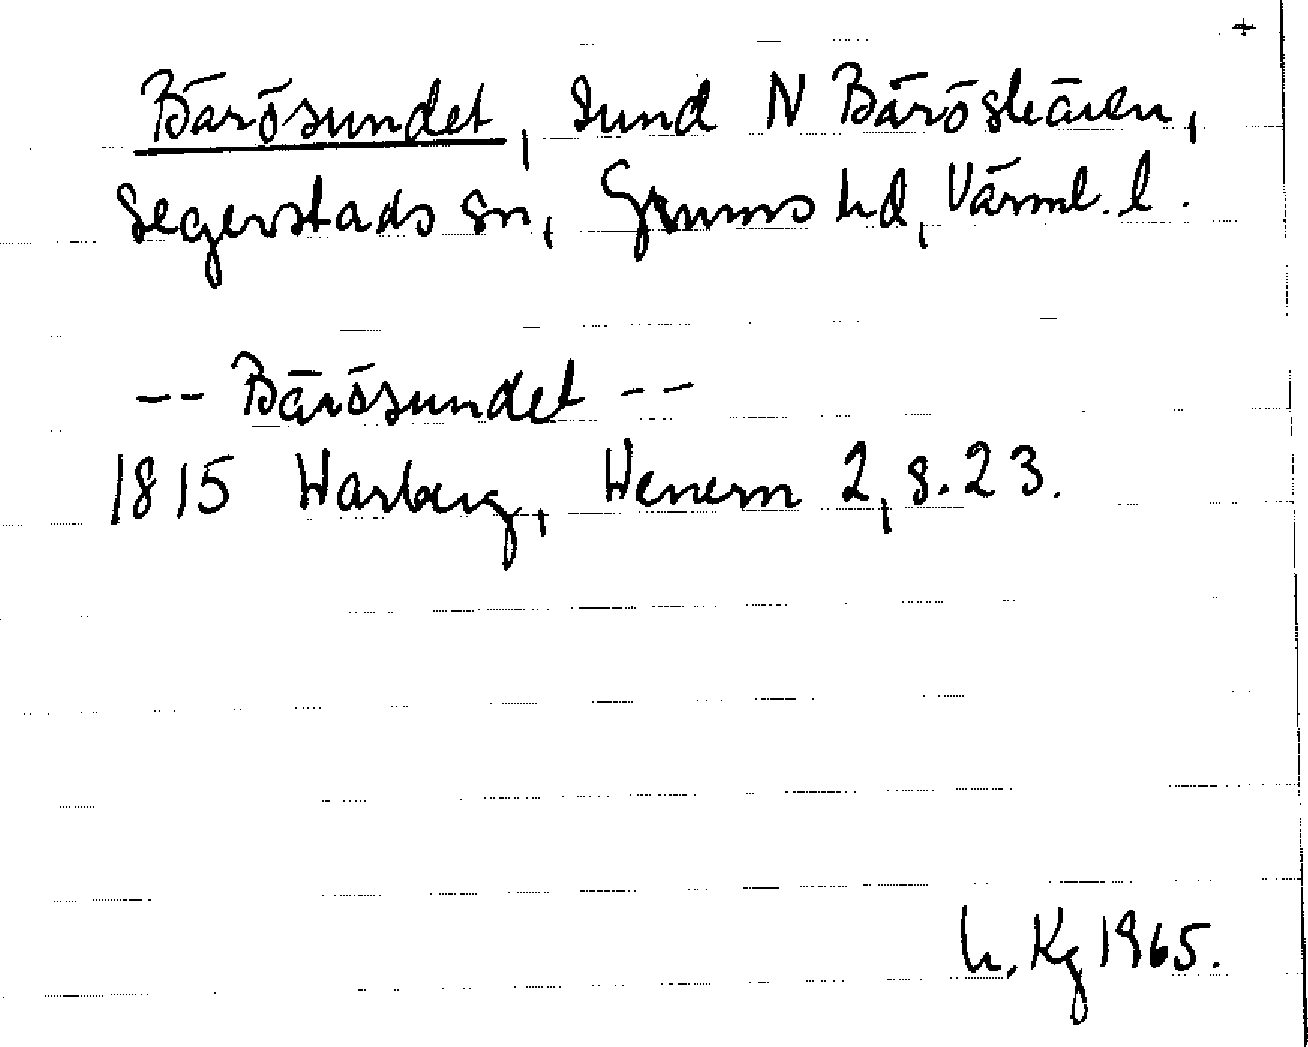 +
Bärösundet, sund N Bäröskären,
Segerstads sn, Grums hd, Värml. l.
-- Bärösundet --
1815 Warberg, Wenern 2, s. 23.
Kg 1965.